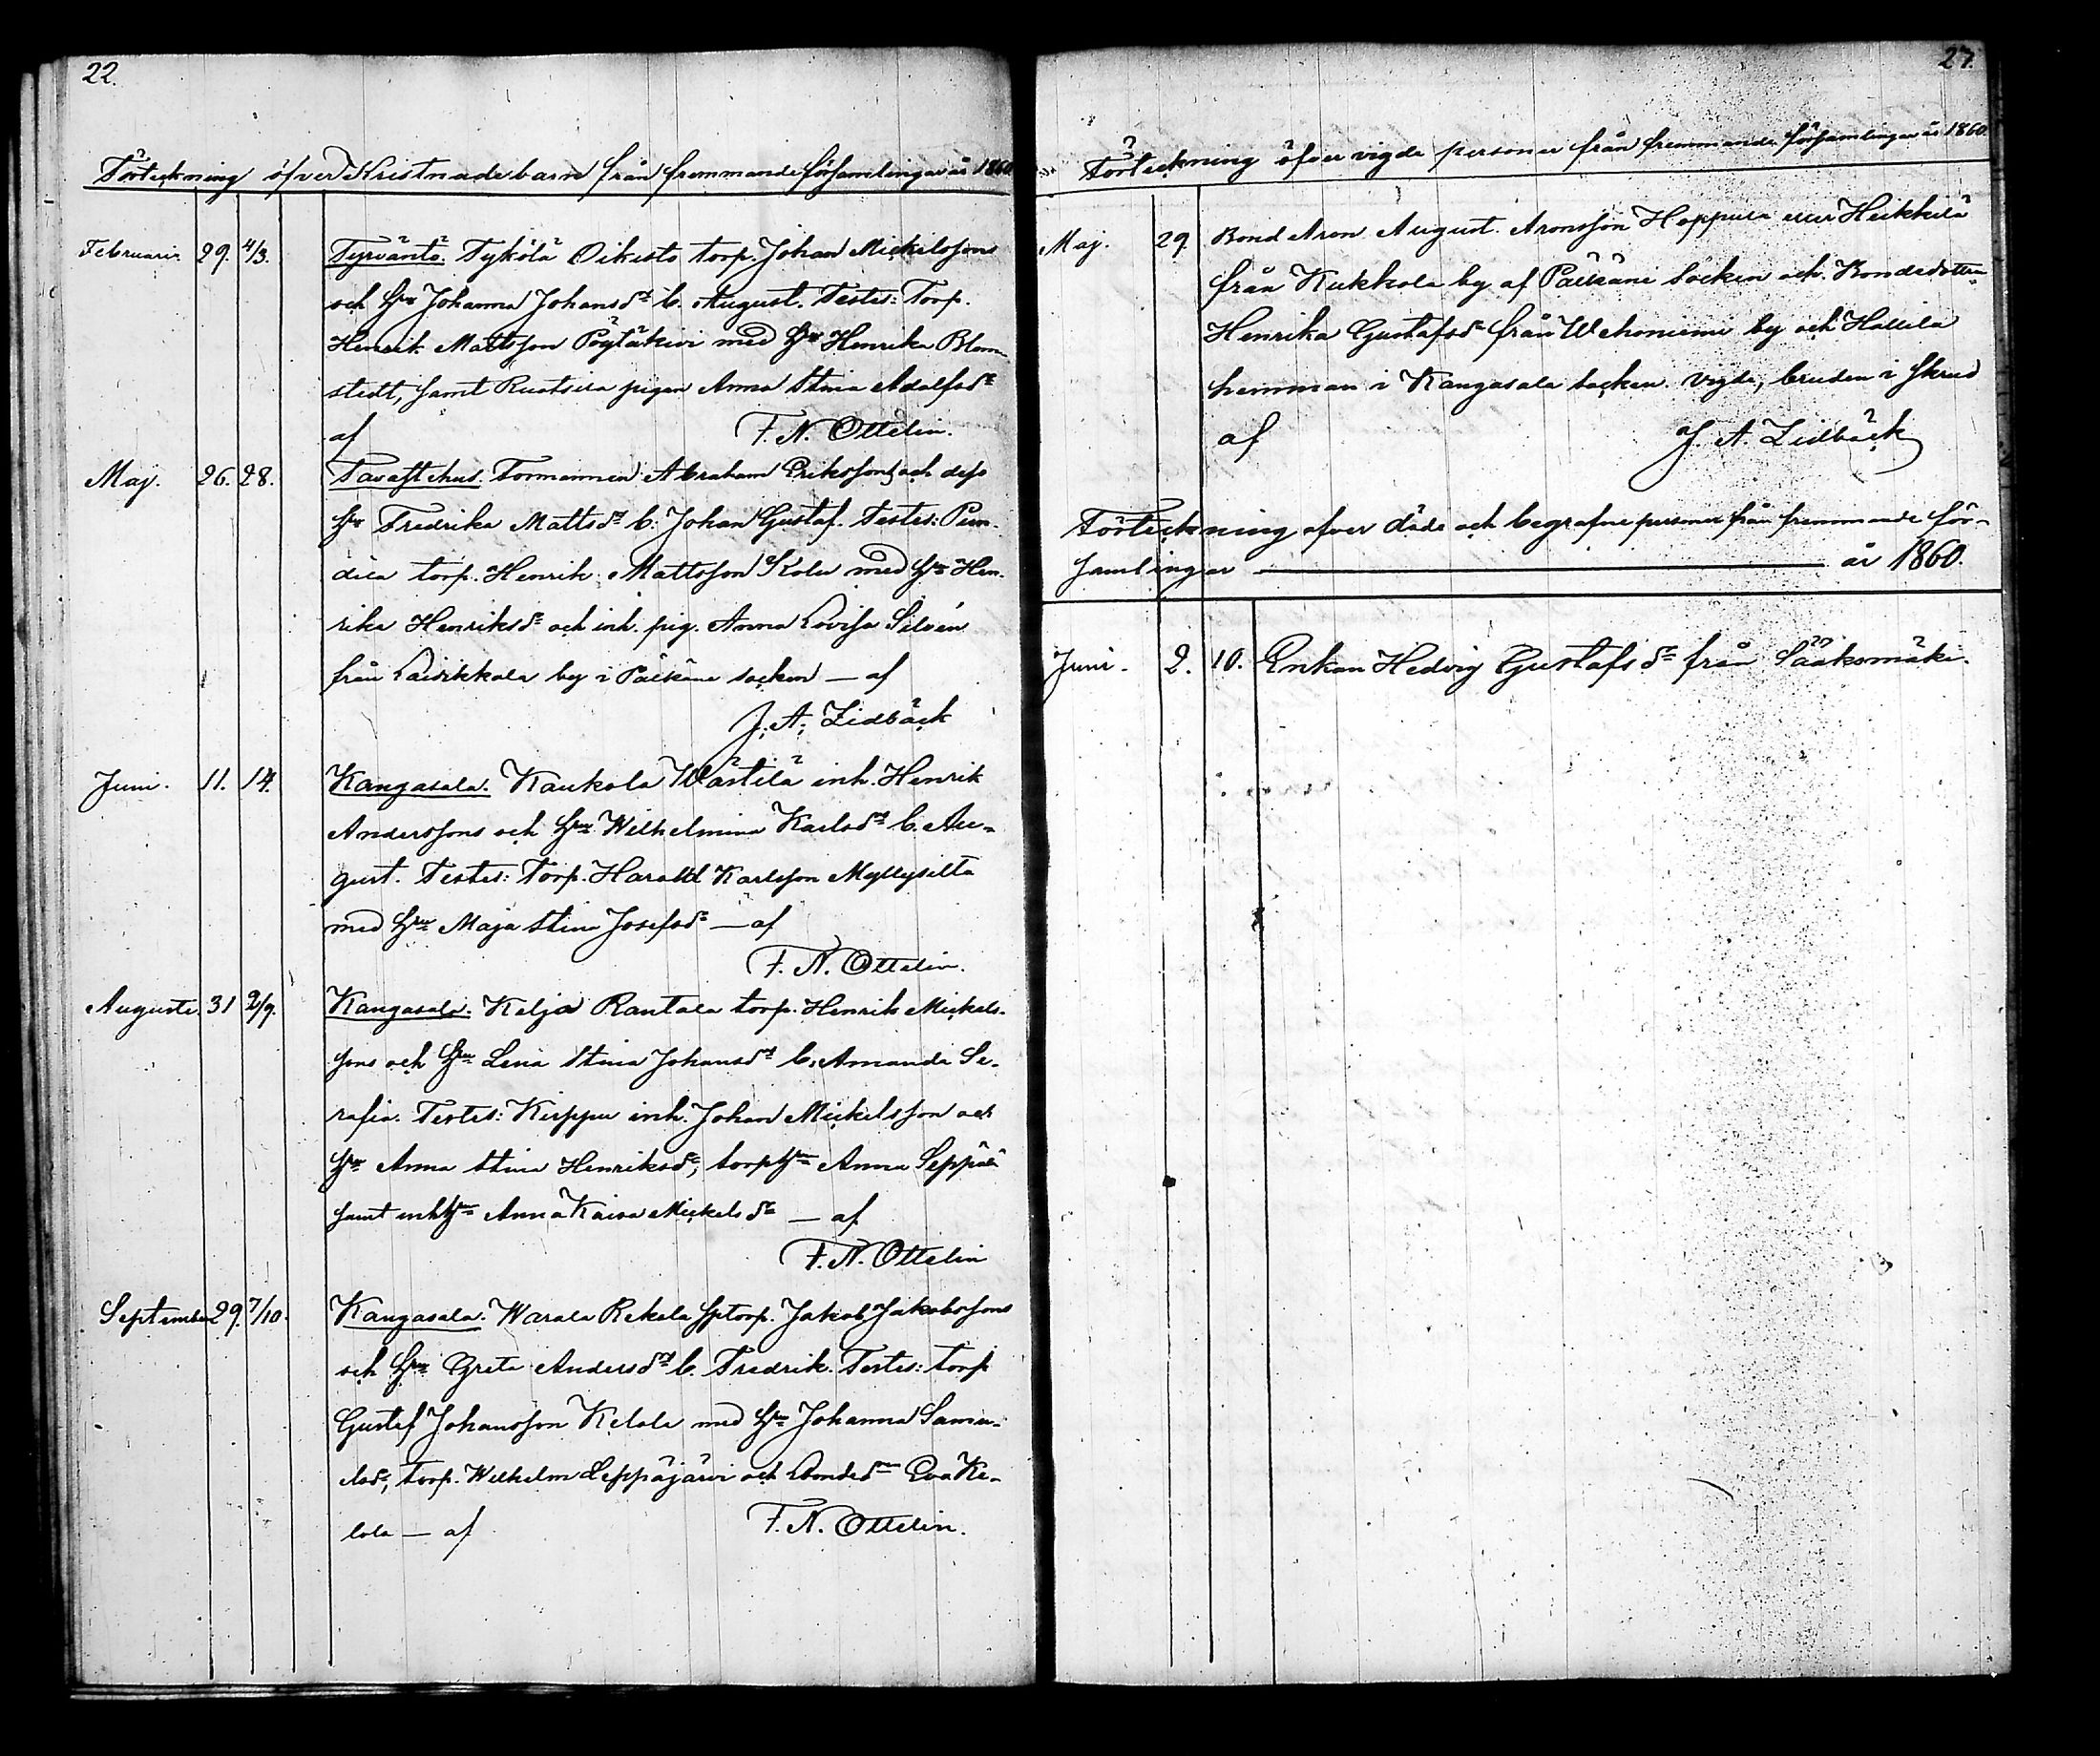 22.
Förteckning öfver Kristnade barn från fremmande församlingar år 1860
Februari. 29. 4/3. Tyrväntö. Tykölä Oikisto torp. Johan Mickelssons
och hu Johanna Johansdr b. August. Testes: Torp.
Henrik Mattsson Pöytäkivi med hu Henrika Blom-
stedt, samt Ruotsila pigan Anna Stina Adolfsdr
af F. N. Ottelin.
Maj. 26. 28. Tavastehus. Tormannen Abraham Erikssons och dess
hu Fredrika Mattsdr b. Johan Gustaf. Testes: Pun-
dila torp. Henrik Mattsson Kolu med hu Hen-
rika Henriksdr och inh. pig. Anna Lovisa Silvén
från Laidikkala by i Pälkäne socken — af
J. A. Lidbäck
Juni. 11. 14. Kangasala. Kaukola Wästilä inh. Henrik
Anderssons och hu Wilhelmina Karlsdr b. Au-
gust. Testes: torp. Harald Karlsson Myllysilta
med hu Maja Stina Josefsdr — af
F. N. Ottelin.
Augusti. 31 2/9. Kangasala. Keljo Rantala torp. Henrik Mickels-
sons och hu Lena Stina Johansdr b. Amanda Se-
rafia. Testes: Kirppu inh. Johan Mickelsson och
hu Anna Stina Henriksdr, torphu Anna Seppälä
samt inhhu Anna Kaisa Mickelsdr — af
F. N. Ottelin
September 29. 7/10. Kangasala. Warala Rekola sptorp. Jakob Jakobssons
och hu Greta Andersdr b. Fredrik. Testes: torp
Gustaf Johansson Kelola med hu Johanna Samu-
elsdr, torp. Wilhelm Leppäjärvi och bondedn Eva Ke-
lola — af F. N. Ottelin.
27.
Förteckning öfver vigde personer från fremmande församlingar år 1860.
Maj. 29. Bond. Aron August Aronsson Hoppula eller Heikkilä
från Kukkola by af Pälkäne Socken och Bondedottren
Henrika Gustafsdr från Wehoniemi by och Hallila
hemman i Kangasala socken. Vigde, bruden i skrud
af J. A. Lidbäck
Förteckning öfver döde och begrafne personer från fremmande för-
samlingar — år 1860.
Juni. 2. 10. Enkan Hedvig Gustafsdr från Sääksmäki.